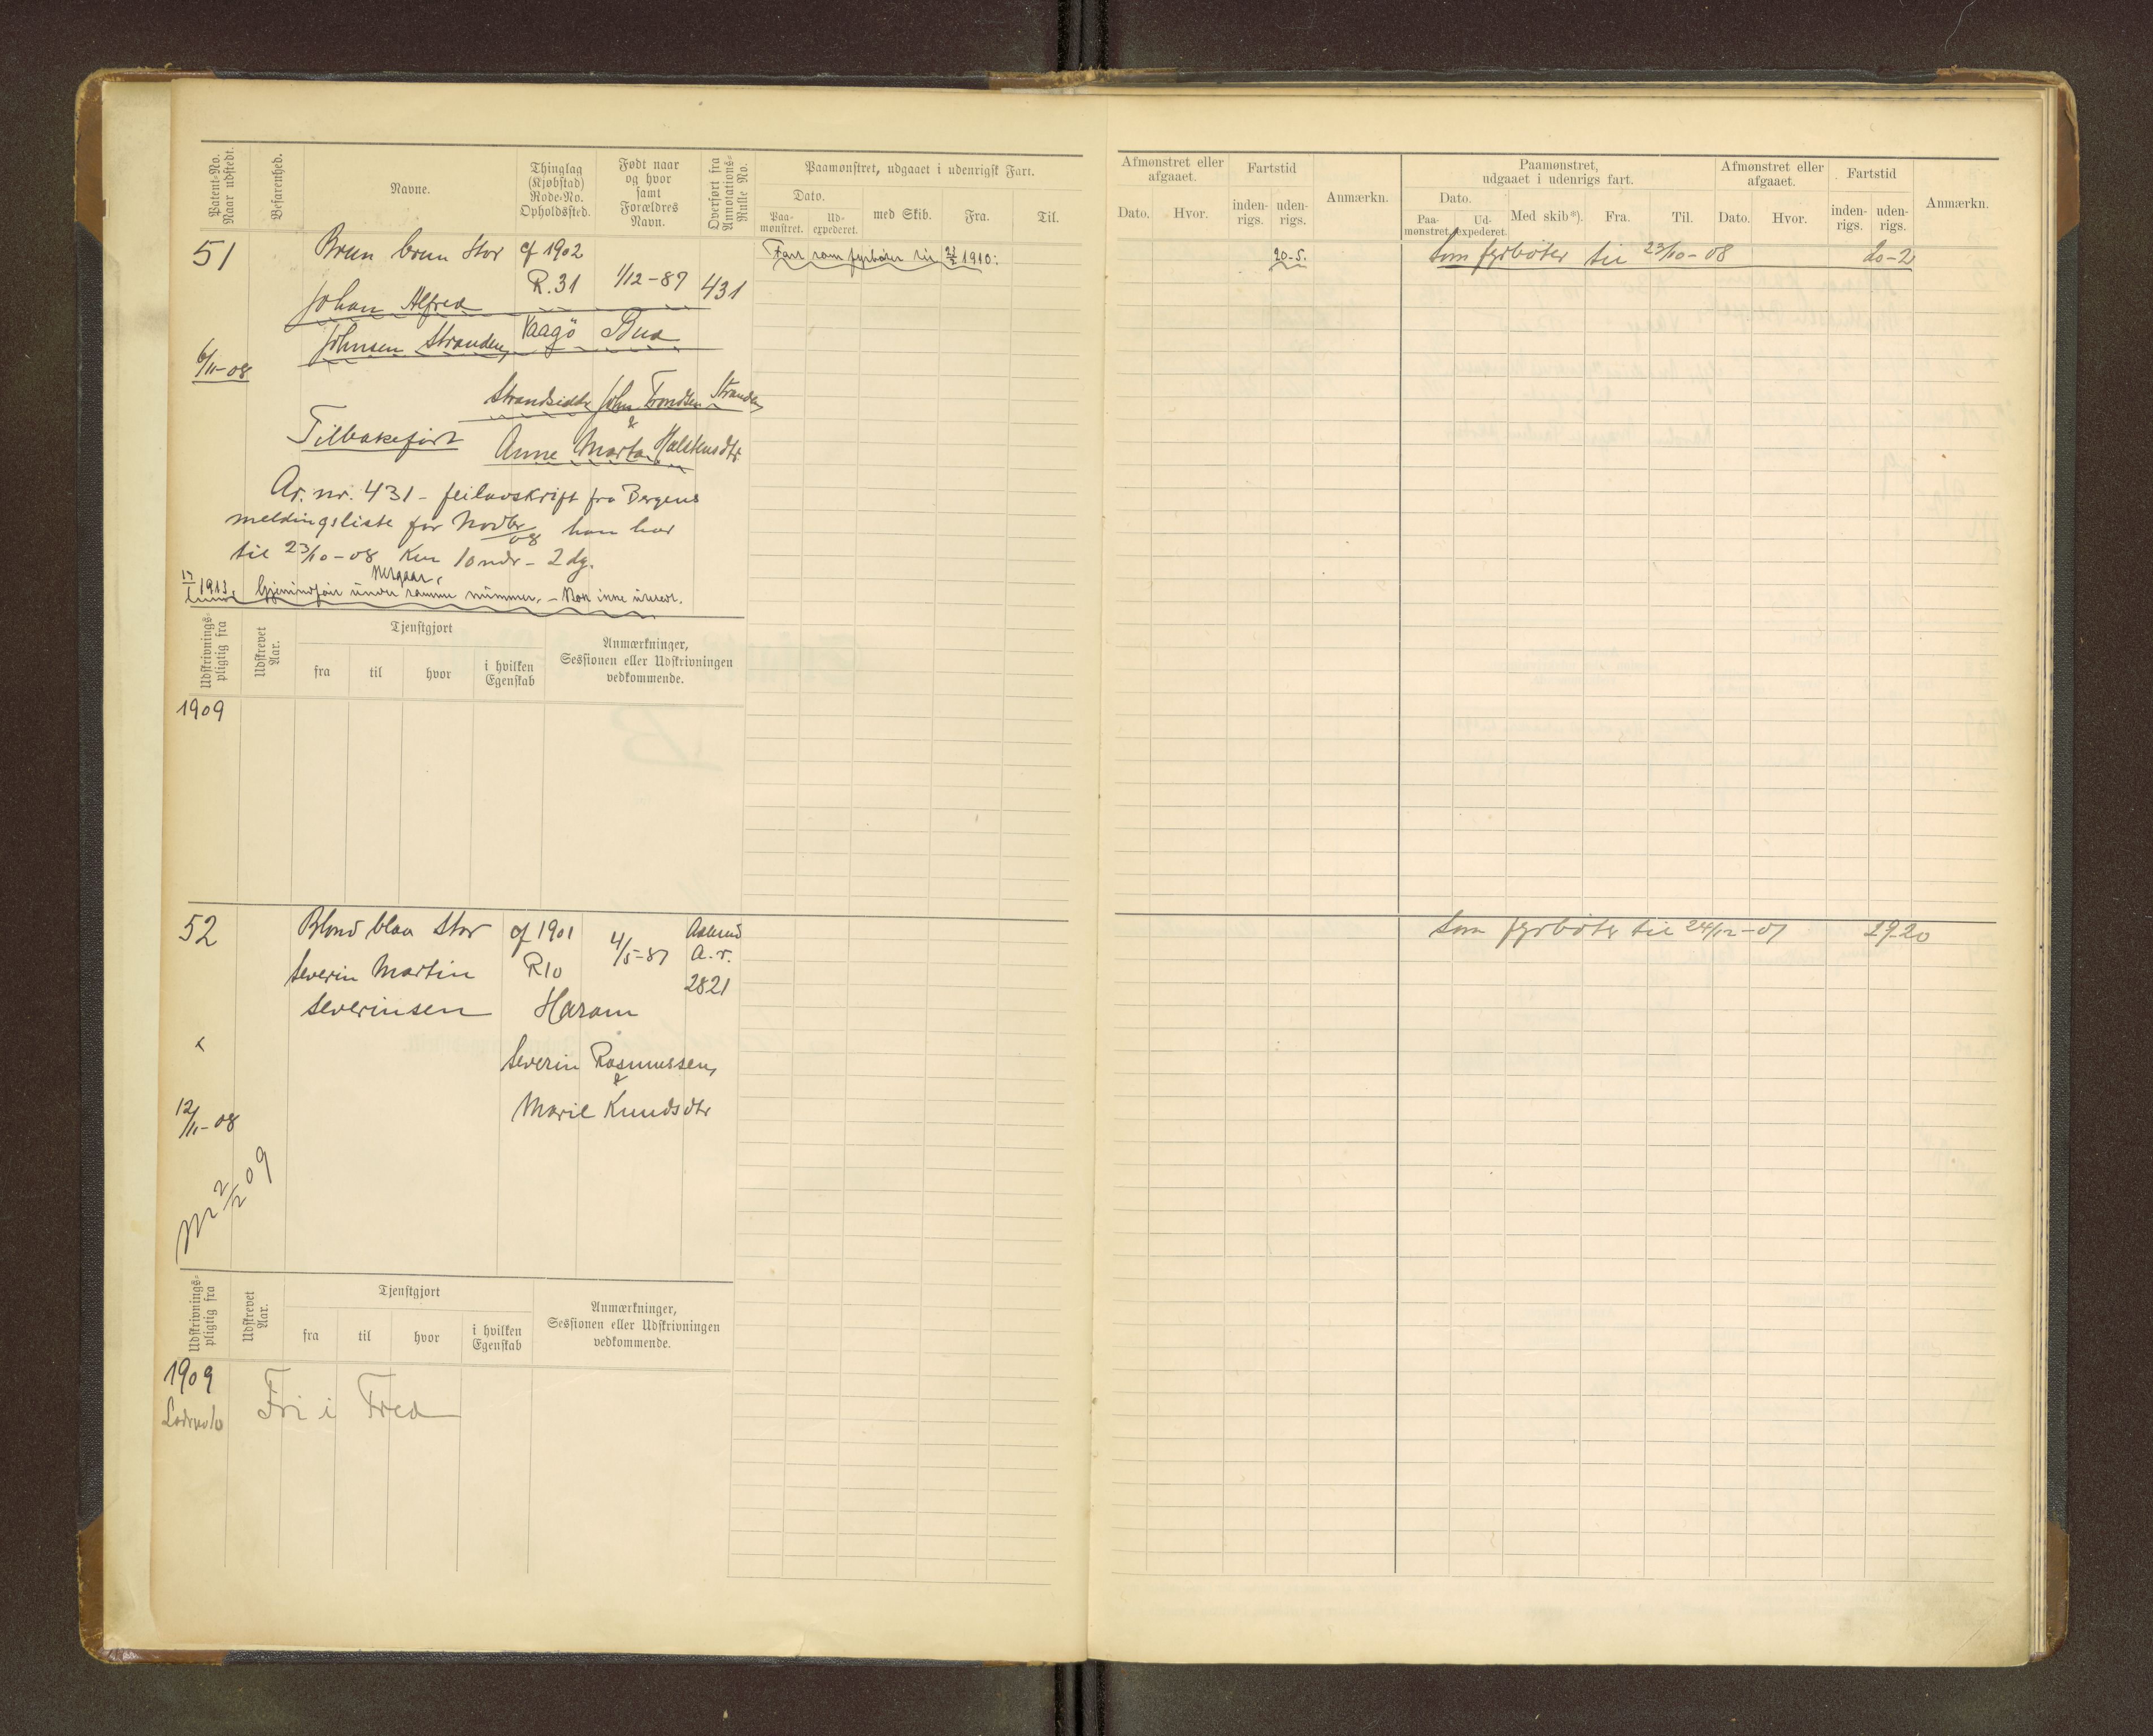 Patent-No. Naar udstedt.
Befarenhed.
Navne.
Thinglag (Kjøbstad) Rode-No. Opholdssted.
Født naar og hvor samt Forældres Navn.
Overført fra Annotations-Rulle No.
Paamønstret, udgaaet i udenrigsk Fart.
Dato.
Paa-mønstret.
Ud-expederet.
med Skib.
Fra.
Til.
51
Brun brun Stor
cf 1902
R. 31
1/12-87
431
Johan Alfred
Johnsen Stranden,
Vaagö
Bud
6/11-08
Strandsidder John Trondsen Stranden
&
Tilbakeført
Anne Marta Halstensdtr
Ar. nr. 431 - feilavskrift fra Bergens
meldingsliste for Novbr 08 han har
til 23/10-08 Kun 10 mdr - 2 dg.
1913. Gjenindført under samme nummer.
Fart som fyrbøter til 1910:
Udskrivnings-pligtig fra
Udskrevet Aar.
Tjenstgjort
fra
til
hvor
i hvilken Egenskab
Anmærkninger, Sessionen eller Udskrivningen vedkommende.
1909
52
Blond blaa Stor
cf 1901
4/5-87
Aalesund
A. r.
2821
Severin Martin
R10
Severinsen
Haram
x
Severin Rasmussen,
&
12/11-08
Marie Knudsdtr
M 2/2 09
Udskrivnings-pligtig fra
Udskrevet Aar.
Tjenstgjort
fra
til
hvor
i hvilken Egenskab
Anmærkninger, Sessionen eller Udskrivningen vedkommende.
1909
Fri i Fred
Afmønstret eller afgaaet.
Dato.
Hvor.
Fartstid
inden-rigs.
uden-rigs.
Anmærkn.
Paamønstret, udgaaet i udenrigs fart.
Dato.
Paa-mønstret.
Ud-expederet.
Med skib*).
Fra.
Til.
Afmønstret eller afgaaet.
Dato.
Hvor.
Fartstid
inden-rigs.
uden-rigs.
Anmærkn.
20-5.
Som fyrbøter til 23/10-08
20-2
Som fyrbøter til 24/12-07
19-20